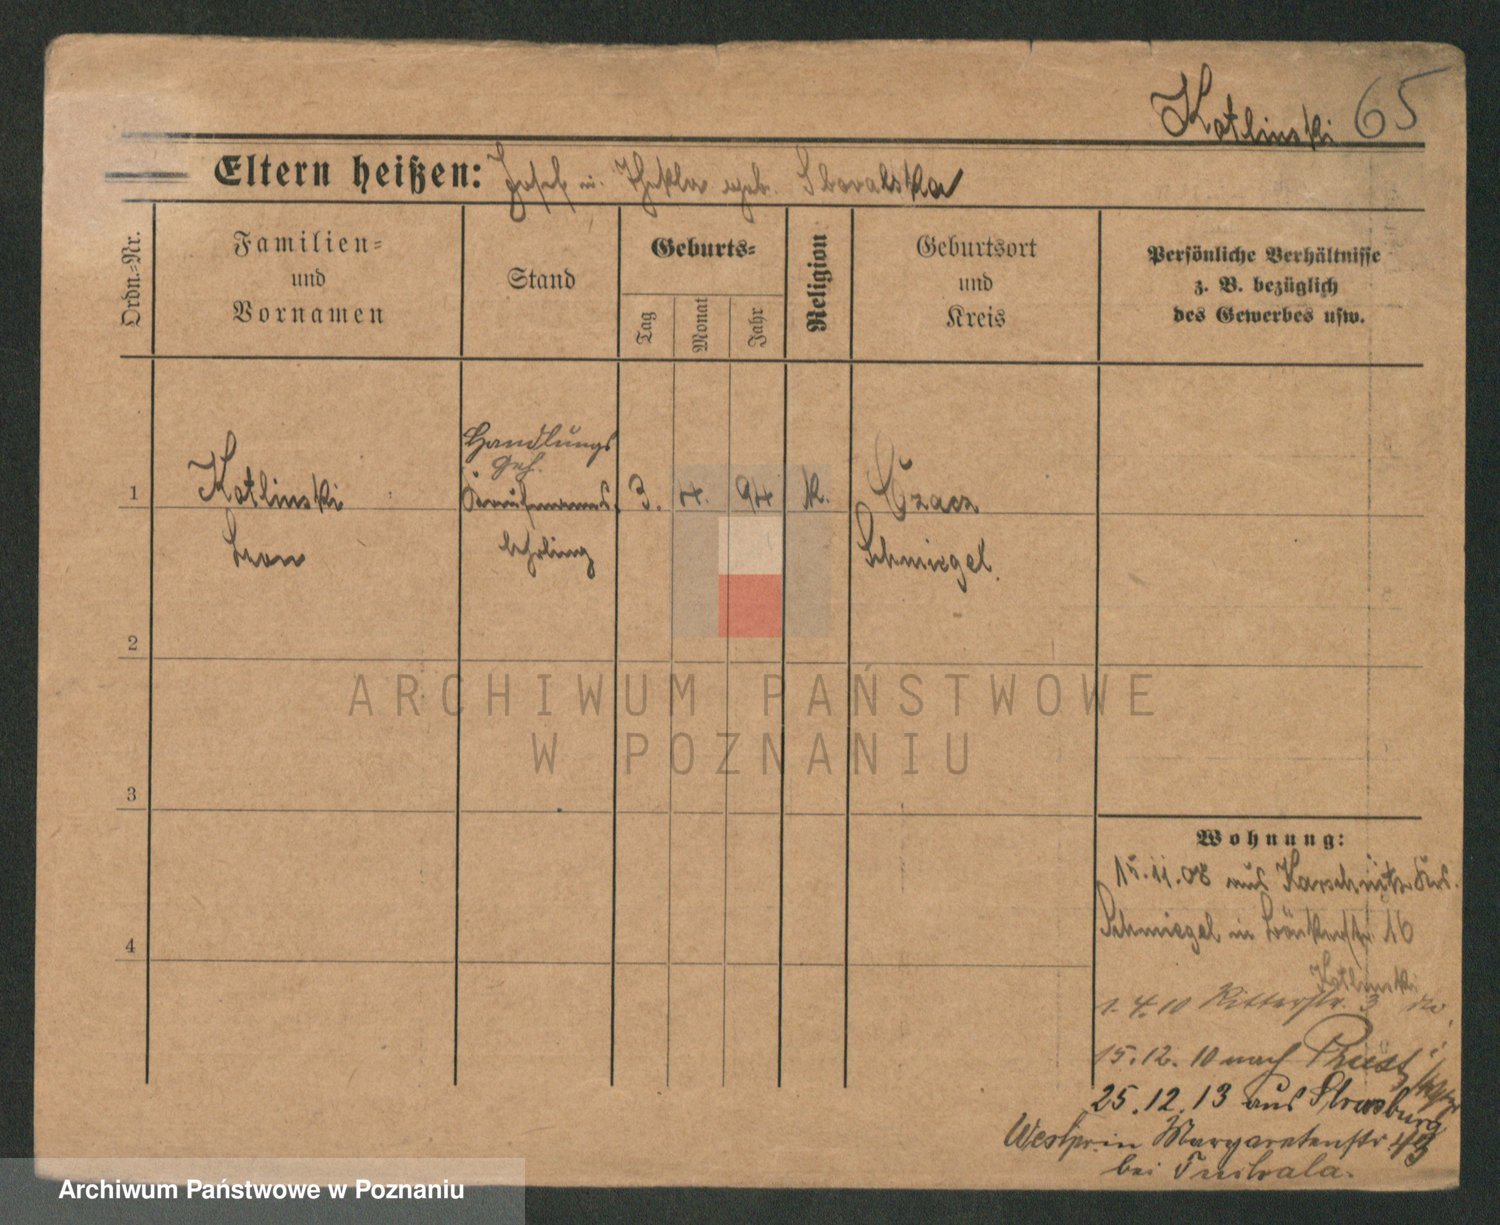 Kotlinski 65
Eltern heißen: Josef u. Thekla geb.
Ordn.=Nr.
Familien=
und
Vornamen
Stand
Geburts=
Tag
Monat
Jahr
Religion
Geburtsort
und
Kreis
Persönliche Verhältnisse
z. B. bezüglich
des Gewerbes usw.
Handlungs
Geh.
1 Kotlinski Kaufmanns 3. 4. 94 k. Czacz
Leon lehrling Schmiegel.
2
3
4
Wohnung:
15.11.08 aus Karschnitz Krs.
Schmiegel in 16
Kotlinski
1.4.10 Ritterstr. 3
15.12.10 nach
25.12.13 aus Strasburg
Westpr. in Margaretenstr
bei
ARCHIWUM PAŃSTWOWE
W POZNANIU
Archiwum Państwowe w Poznaniu